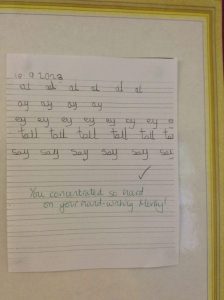 al al al al al al
ay ay ay ay
ey ey ey ey ey ey
tall tall tall tall tall
say say say say say say
You concentrated so hard
on your hand-writing